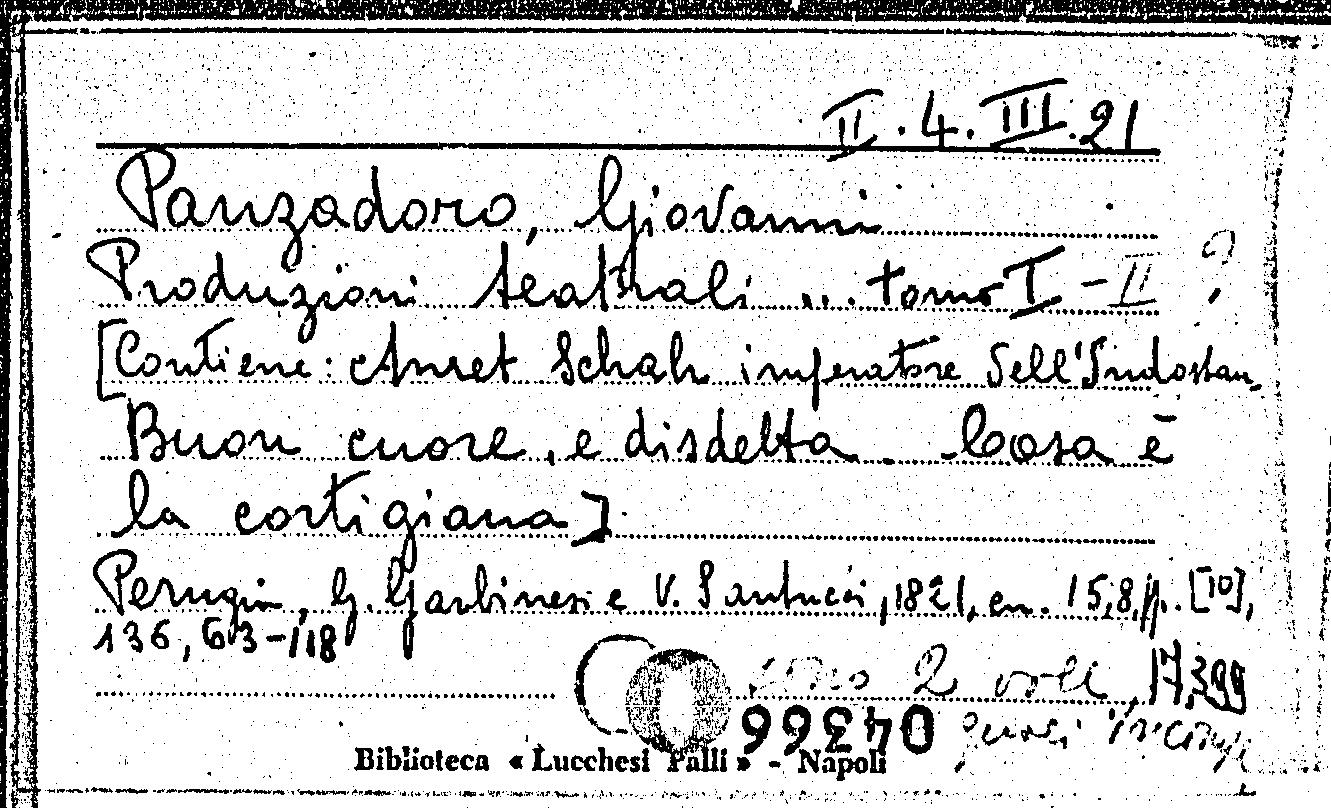 II.4.III.21
Panzadoro, Giovanni
Produzioni teatrali ... tomo I - II ?
[Contiene: Amet Schah imperatore dell'Indostan,
Buon cuore, e disdetta. - Cosa è
la cortigiana]
Perugia, G. Garbinesi e V. Santucci, 1821, cm. 15,8, pp. [10],
136, 63-118
sono 2 voll.
04366
Biblioteca « Lucchesi Palli » - Napoli